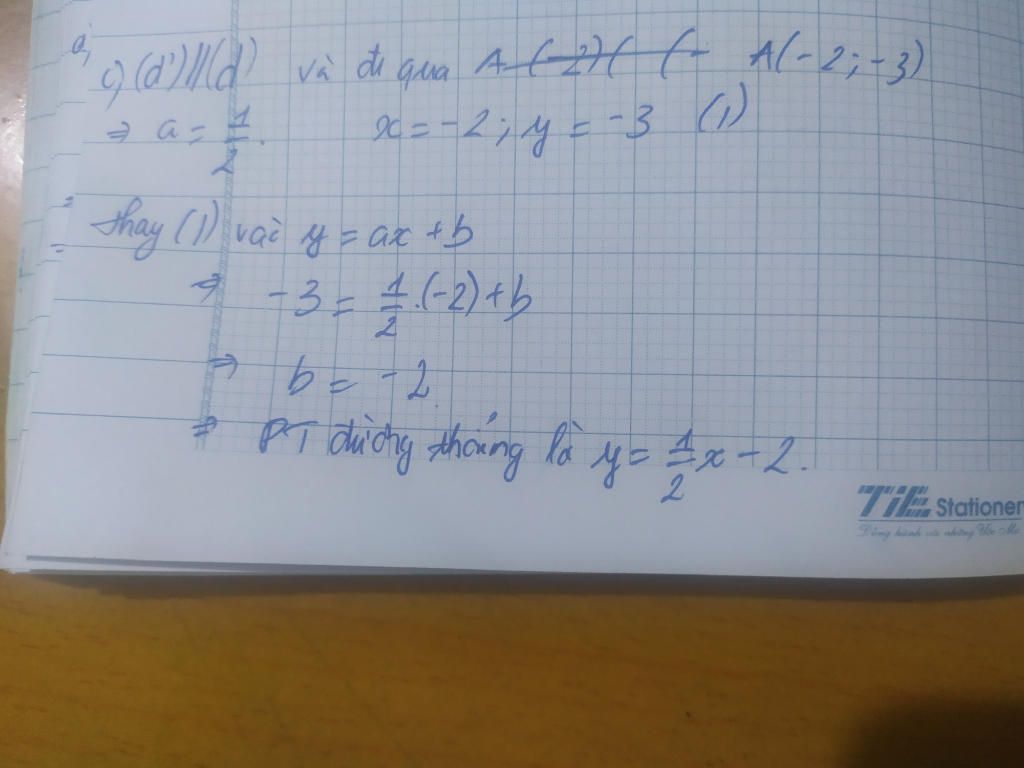 a,
c) (d') // (d) và đi qua A (-2) ( (- A(-2; -3)
⇒ a = 1/2. x = -2; y = -3 (1)
thay (1) vài y = ax + b
⇒ -3 = 1/2 . (-2) + b
⇒ b = -2.
⇒ PT đường thẳng là y = 1/2 x - 2.
TiE Stationer
Đồng hành với những Ước Mơ